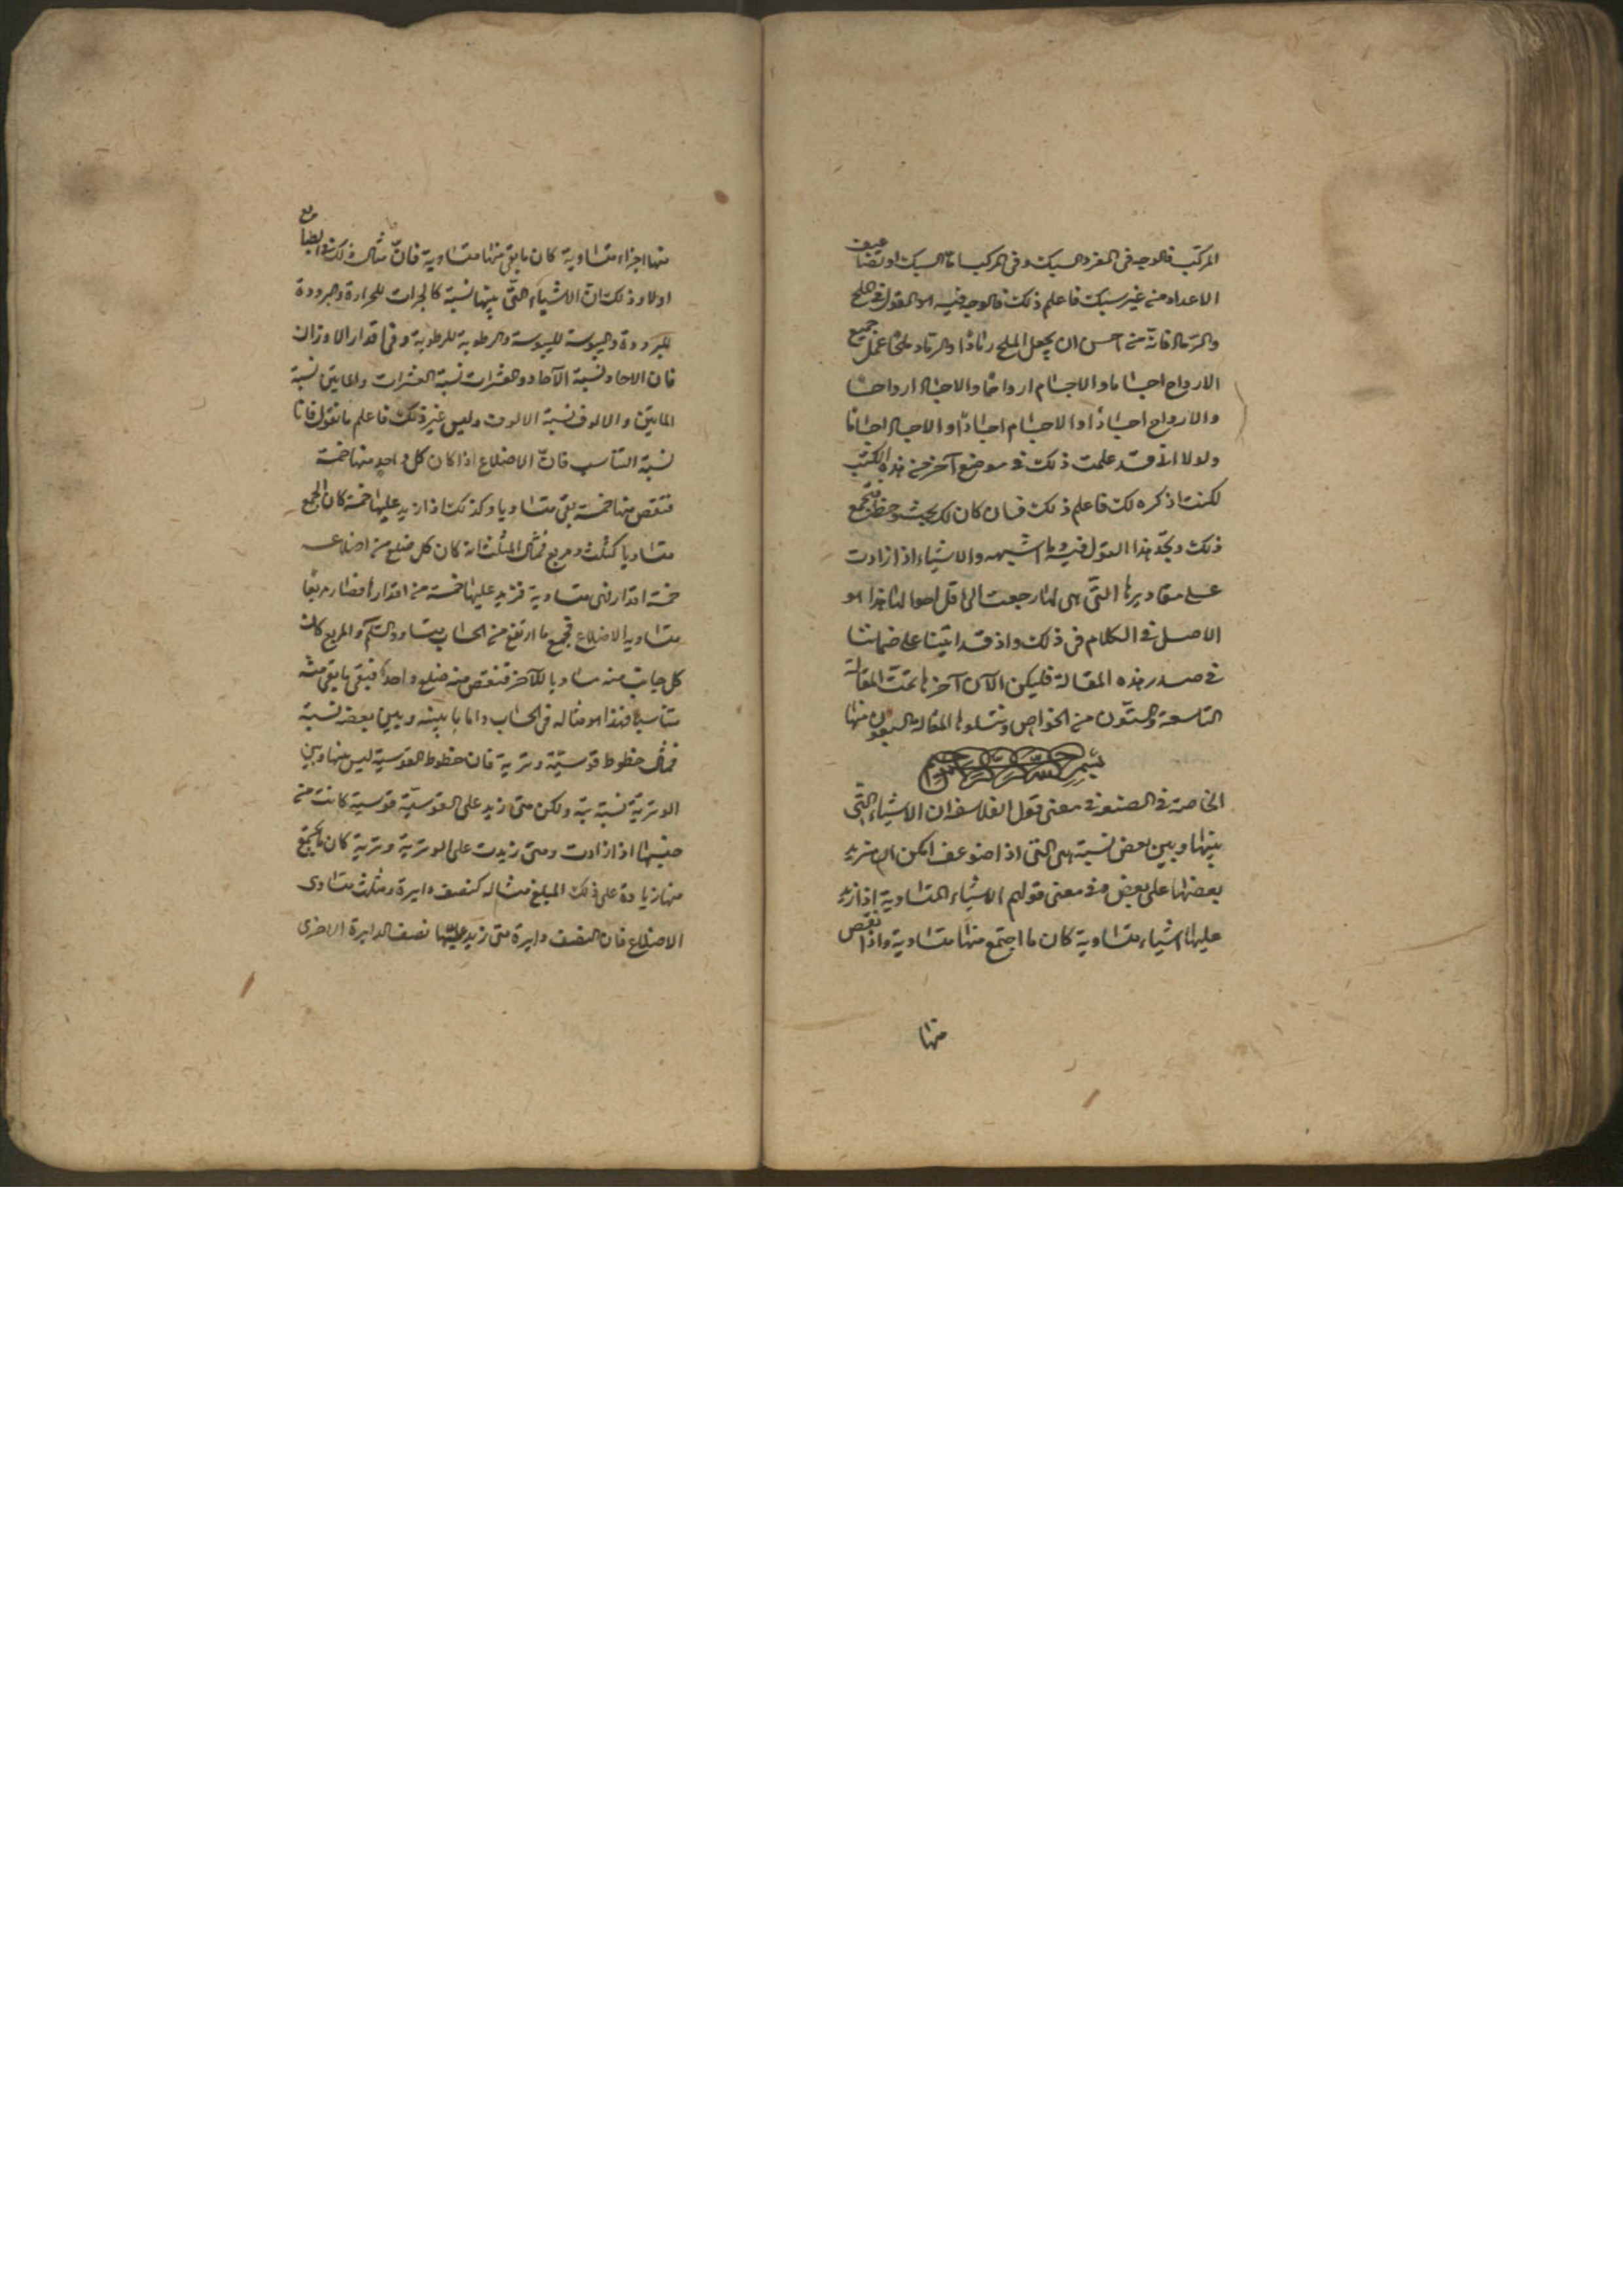 المركب فالوجه فى المفرد السبك وفى المركب اما السبك او تضاعيف
الاعداد من غير سبك فاعلم ذلك فالوجه فيه هو القول فى الملح
والرماد فانه من احسن ان يجعل الملح رمادًا والرماد ملحًا عمل جميع
الارواح اجساما والاجسام ارواحًا والاجساد ارواحًا
والارواح اجسادًا والاجسام اجسادًا والاجساد اجسامًا
ولولا انى قد علمت ذلك فى موضع آخر من هذه الكتب
لكنت اذكره لك فاعلم ذلك فان كان لك بحث وحظ فتجمع
ذلك وتجد هذا القول فيه وما اشبهه والاشياء اذا زادت
على مقاديرها التى هى لها رجعت الى اقل احوالها هذا هو
الاصل فى الكلام فى ذلك واذ قد اتينا على ضماننا
فى صدر هذه المقالة فليكن الآن آخرها تمت المقالة
التاسعة والستون من الخواص وتتلوها المقالة السبعون منها
بسم الله الرحمن الرحيم
الخاصة فى الصنعة فى معنى قول الفلاسفة ان الاشياء التى
بينها وبين بعض نسبة هى التى اذا ضوعف امكن ان يزيد
بعضها على بعض وفى معنى قولهم الاشياء المتساوية اذا زيد
عليها اشياء متساوية كان ما اجتمع منها متساوية واذا نقص
منها
منها اجزاء متساوية كان ما بقى منها متساوية فان مثال ذلك فى الطبايع
اولا وذلك ان الاشياء التى بينها نسبة كالحرارت للحرارة والبرودة
للبرودة واليبوسة لليبوسة والرطوبة للرطوبة وفى اقدار الاوزان
فان الاحاد نسبة الآحاد والعشرات نسبة العشرات والمايتين نسبة
المايتين والالوف نسبة الالوف وليس غير ذلك فاعلم ما نقول فاما
نسبة التناسب فان الاضلاع اذا كان كل واحد منها خمسة
فتنقص منها خمسة بقى متساويا وكذلك اذا زيد عليها خمسة كان الجمع
متساويا كمثلث ومربع فمثال المثلث انه كان كل ضلع من اضلاعه
خمسة اقدار فهى متساوية فزيد عليها خمسة من اقدار فصار مربعًا
متساويه الاضلاع فجمع ما ارتفع من الحساب والمربع كان
كل جانب منه مساويا للآخر فتنقص منه ضلع واحدًا فيبقى ما بقى منه
متناسبًا فهذا هو مثاله فى الحساب واما ما بينه وبين بعضه نسبة
فمثال خطوط قوسية وترية فان خطوط القوسية ليس بينها وبين
الوترية نسبة بتة ولكن متى زيد على القوسية قوسية كانت من
جنسها اذا زادت ومتى زيدت على الوترية وترية كان ما يجتمع
منها زيادة على ذلك المبلغ مثاله كنصف دايرة ومثلث متساوى
الاضلاع فان النصف دايرة متى زيد عليها نصف الدايرة الاخرى